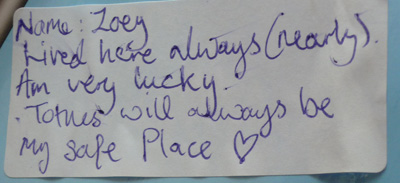 Name: Zoey
Lived here always (nearly).
Am very lucky.
. Totnes will always be
my safe Place ♡